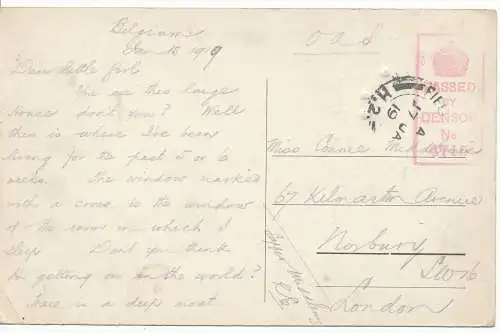 Belgium
Jan 15 1919
Dear little girl
You see this large
house don't you? Well
this is where I've been
living for the past 5 or 6
weeks. The window marked
with a cross is the window
of the room in which I
sleep Don't you think
I'm getting on in the world?
There is a deep moat
O A S
PASSED
BY
CENSOR
No
FIEL
H.2
A
17 JA
19
Miss Connie
67 Kilmartin Avenue
Norbury
S.W.16
London
R.E.